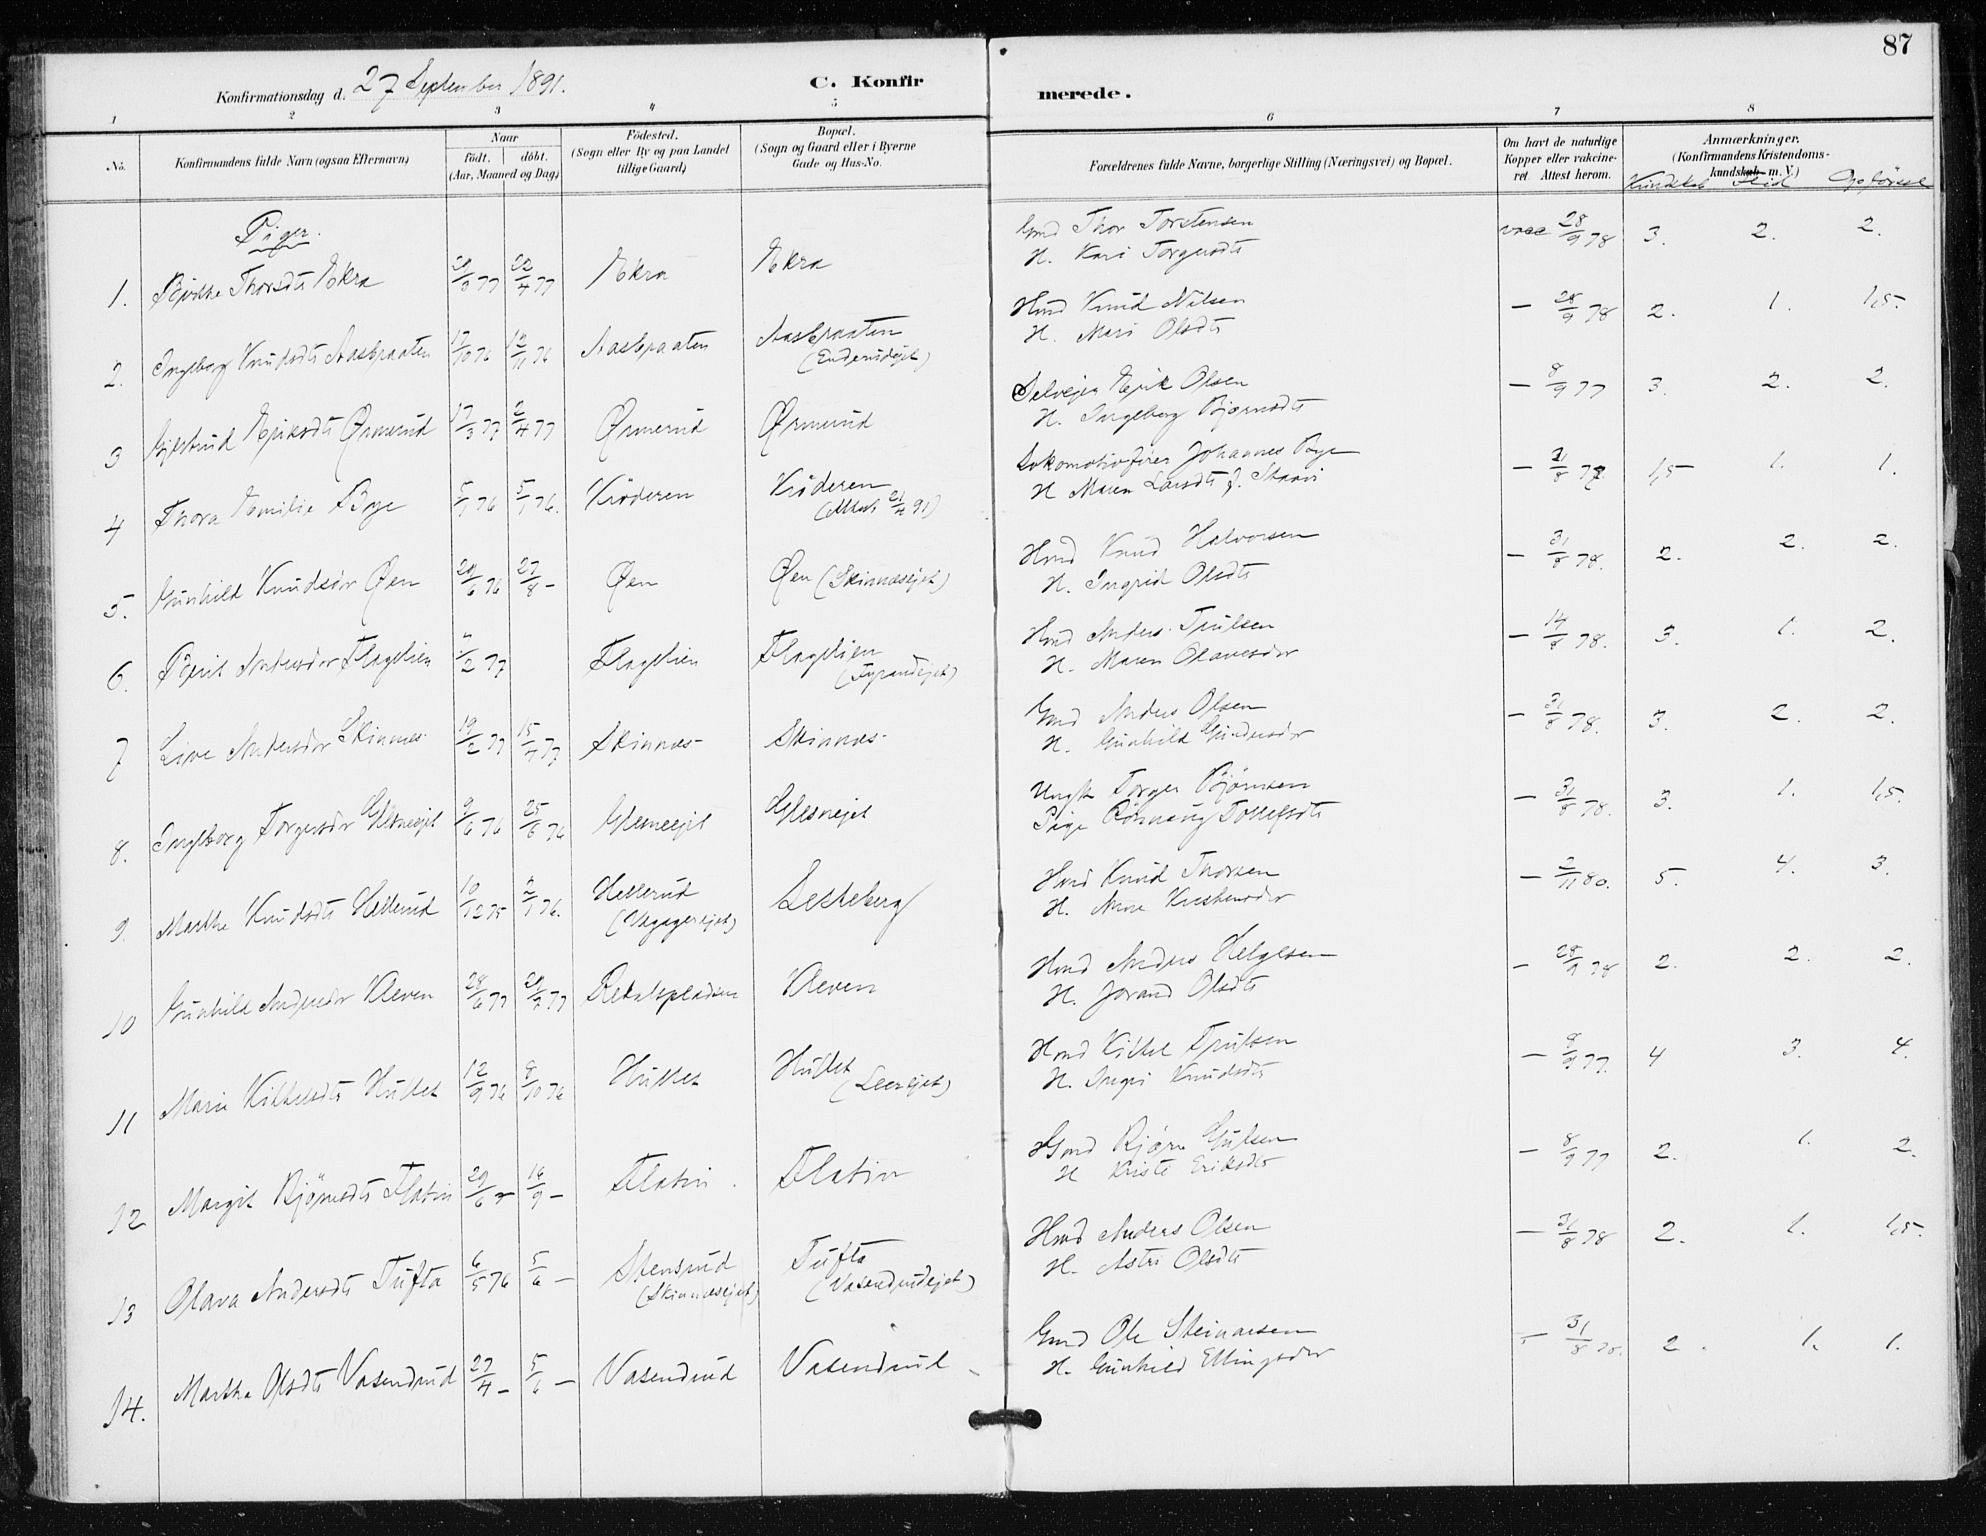 87
Konfirmationsdag d. 27 September 1891.
C. Konfirmerede.
1 2 3 4 5 6 7 8
No. Konfirmandens fulde Navn (ogsaa Efternavn) Naar födt. döbt. (Aar, Maaned og Dag) Födested. (Sogn eller By og paa Landet tillige Gaard) Bopæl. (Sogn og Gaard eller i Byerne Gade og Hus-No. Forældrenes fulde Navne, borgerlige Stilling (Næringsvei) og Bopæl. Om havt de naturlige Kopper eller vakcineret. Attest herom. Anmærkninger. (Konfirmandens Kristendomskundskab m. V.)
Kundskab Flid Opførsel
Piger.
1. Thorsdt Ekra 77 22/4 77 Ekra Ekra Gmd Thor Torstensen
H. Kari Torgersdt vacc 28/9 78 3. 2. 2.
2. Ingeborg Knudsdt Aasbraaten 17/10 76 12/11 76 Aasbraaten Aasbraaten Hmd Knud Nilsen
H. Mari Olsdt — 28/9 78 2. 1. 1,5.
3 Eriksdt Ørmerud 17/3 77 2/4 77 Ørmerud Ørmerud Selveier Erik Olsen
H. Ingeborg Bjørnsdt — 8/9 77 3. 2. 2.
4 Thora Emilie Bye 5/1 76 5/ 76. Krøderen Krøderen
(Attest 91) Lokomotivfører Johannes Bye
H Maren Larsdt f. — /8 1,5 1. 1.
5. Gunhild Knudsdr Øen 6 76 27/8 — Øen Øen (Skinnesejet) Hmd Knud Halvorsen
H. Ingrid Olsdt — 31/8 78. 2. 2. 2.
6. Berit Andersdr Flagelien /2 77 Flagelien Flagelien Hmd Anders Trulsen
H. Maren Olavesdr — 14/8 78. 3. 1. 2.
7 Live Andersdr Skinnes 19/2 77 15/4 77 Skinnes Skinnes Gmd Anders Olsen
H. Gunhild Gundersdr — 31/8 78. 3. 2. 2.
8. Ingeborg Torgersdr Glesneejet 9/6 76 25/6 76 Glesneejet Glesnejet Ungk Torger Bjørnsen
Pige Rønnaug Tollefsdt — 31/8 78. 3. 1. 1,5.
9. Marthe Knudsdt Hellerud 10/12 75 2/1 76. Hellerud Lesteberg Hmd Knud Thorsen
H. Anne Kristensdr — 2/11 80. 5. 4. 3.
10 Gunhild Andersdr Kleven 28/6 77 29/7 77 Kleven Hmd Anders Helgesen
H. Jorand Olsdt — 28/9 78 2. 2. 2.
11 Marie Kittelsdt Hullet 12/9 76 8/10 76 Hullet Hullet Hmd Kittel Trulsen
H. Ingri Knudsdt — 8/9 77. 4 3. 4.
12 Margit Bjørnsdt Flatin 29/6 — 16/9 — Flatin Flatin Gmd Bjørn Gulsen
H Kristi Eriksdt — 8/9 77 2. 1. 2.
13 Olava Andersdt Tufta 6/5 76 5/6 — Stensrud
(Skinnesejet) Tufta
(Vasendrudejet) Hmd Anders Olsen
H. Astri Olsdt — 31/8 78 2. 1. 1,5.
14. Marthe Olsdt Vasendrud 27/4 — 5/6 — Vasendrud Vasendrud Gmd Ole Steinarsen
H. Gunhild Ellingsdr — 31/8 78. 2. 1. 1.